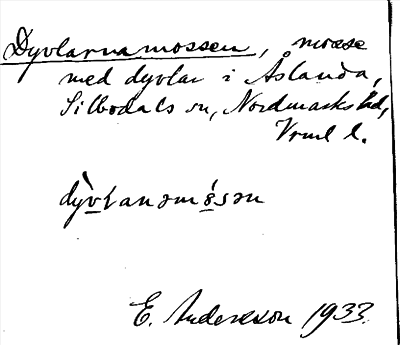 Dyvlarnamossen, mosse
med dyvlar i Åslanda,
Silbodals sn, Nordmarks hd,
Vrml l.
dỳvlanəmósən
E. Andersson 1933.